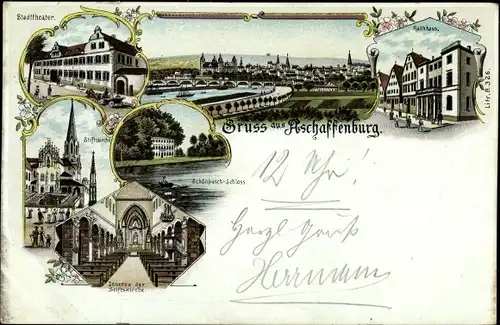 Stadttheater.
Rathhaus.
Litr. B. 326.
Gruss aus Aschaffenburg.
Stiftskirche
Schönbusch-Schloss
Inneres der
Stiftskirche
12 Uhr!
Herzl. Gruß
Herrmann